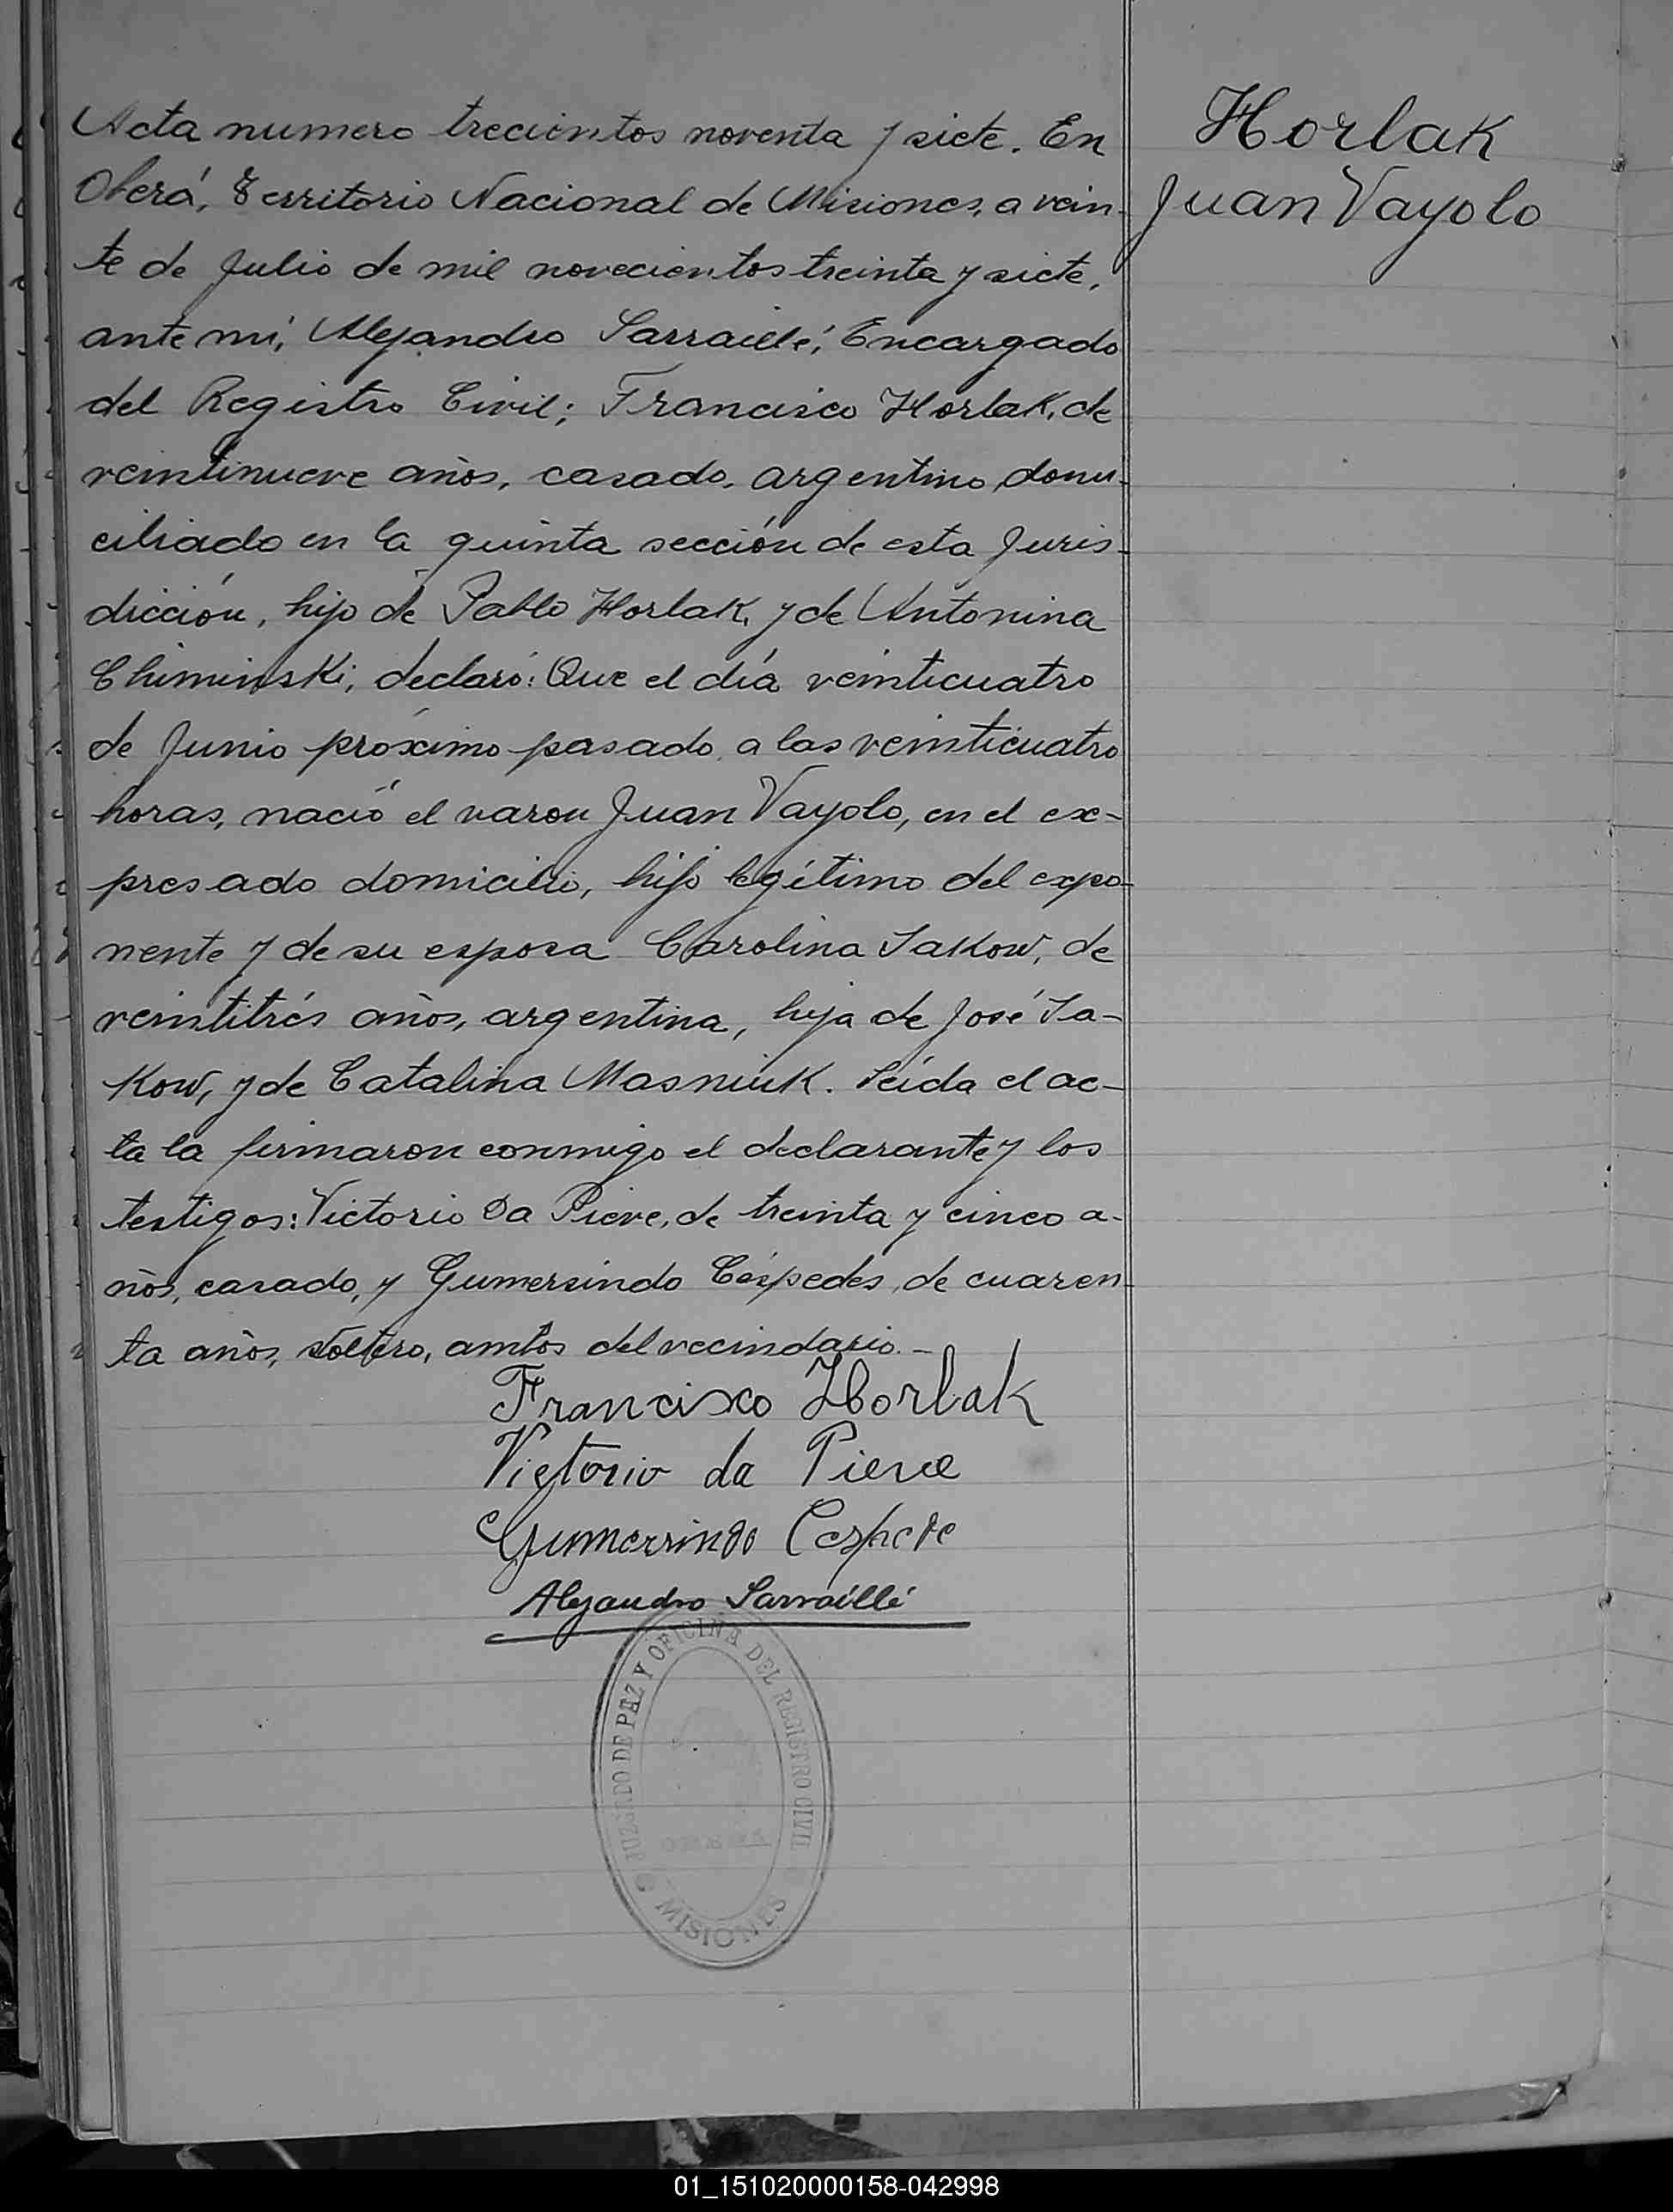 Acta numero trecientos noventa y siete. En
Oberá, Territorio Nacional de Misiones, a vein-
te de Julio de mil novecientos treinta y siete,
ante mí, Alejandro Sarraillé, Encargado
del Registro Civil; Francisco Horlak, de
veintinueve años, casado, argentino, domi-
ciliado en la quinta sección de esta Juris-
dicción, hijo de Pablo Horlak, y de Antonina
Chiminski, declaró: Que el día veinticuatro
de Junio próximo pasado, a las veinticuatro
horas, nació el varon Juan Vayolo, en el ex-
presado domicilio, hijo legítimo del expo-
nente y de su esposa Carolina Sakow, de
veintitrés años, argentina, hija de José Sa-
kow, y de Catalina Masniuk. Leída el ac-
ta la firmaron conmigo el declarante y los
testigos: Victorio Da Pieve, de treinta y cinco a-
ños, casado, y Gumersindo Céspedes, de cuaren-
ta años, soltero, ambos del vecindario.-
Horlak
Juan Vayolo
Francisco Horlak
Victorio da Pieve
Gumersindo Cespede
Alejandro Sarraillé
JUZGADO DE PAZ Y OFICINA DEL REGISTRO CIVIL
MISIONES
01_151020000158-042998